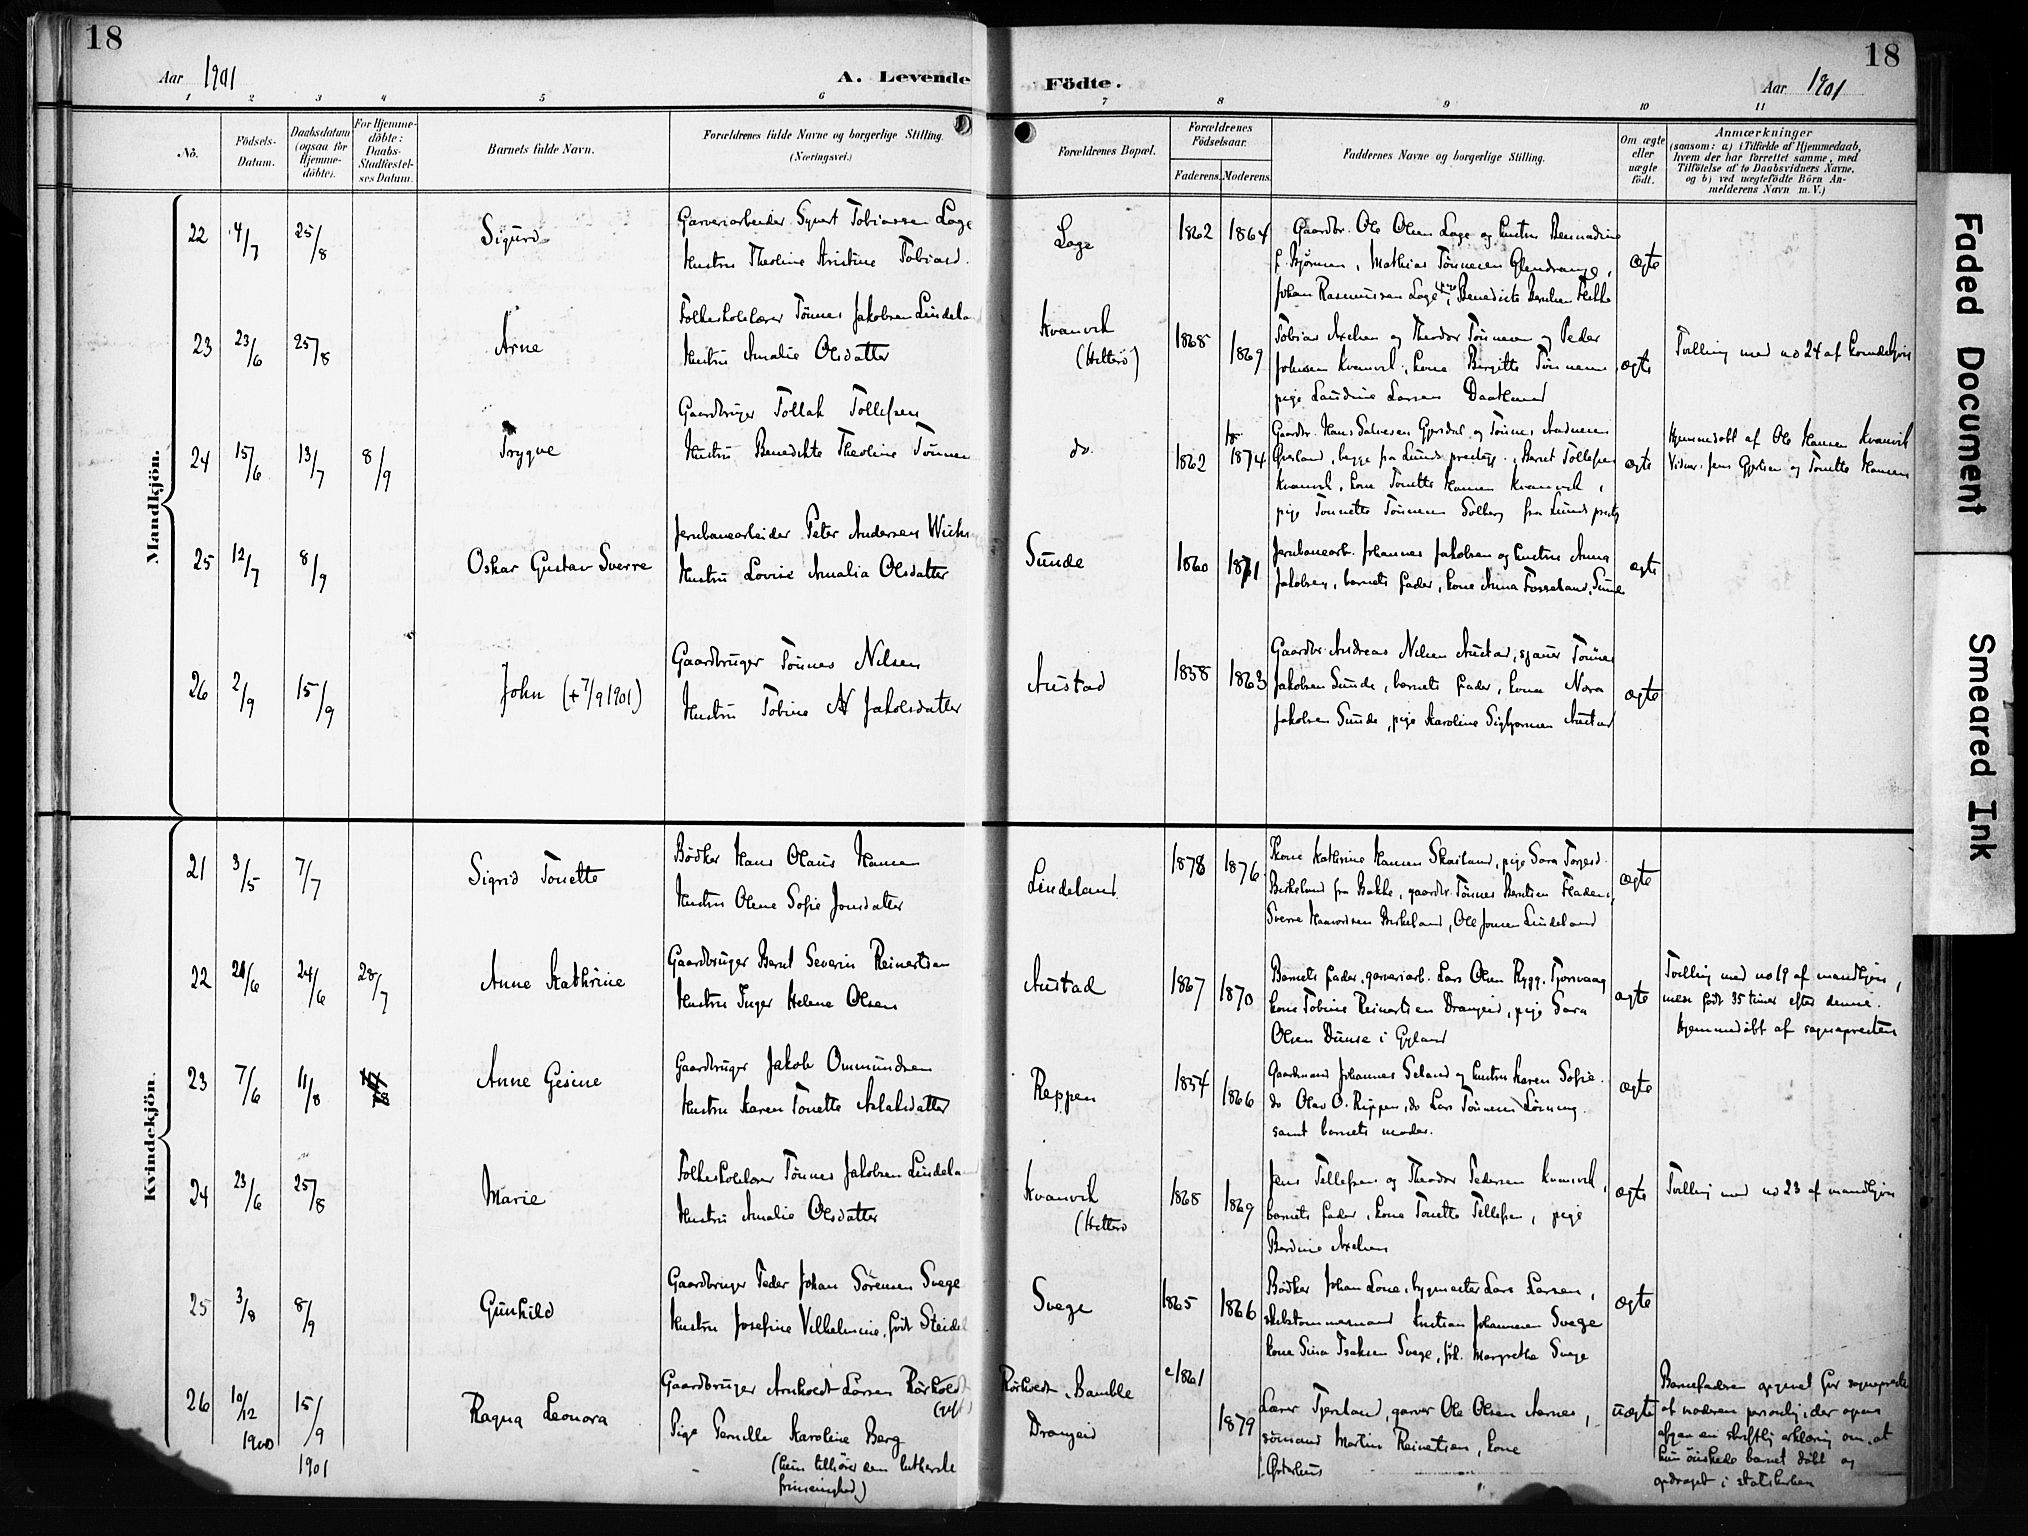 18
Aar 1901
A. Levende
Födte.
Aar 1901
18
1 2 3 4 5 6 7 8 9 10 11
No.
Födsels-
Datum.
Daabsdatum
(ogsaa for
Hjemme-
döbte).
For Hjemme-
döbte:
Daabs-
Stadfæstel-
ses Datum.
Barnets fulde Navn.
Forældrenes fulde Navne og borgerlige Stilling.
(Næringsvei.)
Forældrenes Bopæl.
Forældrenes
Födselsaar.
Faderens. Moderens.
Faddernes Navne og borgerlige Stilling.
Om ægte
eller
uægte
födt.
Anmærkninger
(saasom: a) i Tilfælde af Hjemmedaab,
hvem der har forrettet samme, med
Tilföielse af to Daabsvidners Navne,
og b) ved uægtefödte Börn An-
melderens Navn m. V.)
Mandkjön.
22 4/7 25/8 Sigurd
Garveriarbeider Syvert Tobiassen Loge
Hustru Theoline Kristine Tobiasd.
Loge 1862 1864
Gaardbr. Ole Olsen Loge og hustru Bernardine
f. Bjørnsen, Mathias Tönnesen Glendrange,
Johan Rasmussen Loge, Benedicte Berntsen Flikke
ægte
23 23/6 25/8 Arne
Folkeskolelærer Tönnes Jakobsen Lindeland
Hustru Amalie Olsdatter
Kvanvik
(Hitterö)
1868 1869
Tobias Axelsen og Theodor Tönnesen og Peder
Johnsen Kvanvik, kone Birgitte Tönnesen,
pige Laudine Larsen Daatland
ægte
Tvilling med no 24 af kvindekjön
24 15/6 13/7 8/9 Trygve
Gaardbruger Tollak Tollefsen
Hustru Benedikte Theoline Tönnesen
do. 1862 1874
Gaardbr. Hans Salvesen Gyersdal og Tönnes Andresen
Eiesland, begge fra Lunds prestegj., Bernt Tollefsen
Kvanvik, kone Tonette Hansen Kvanvik,
pige Tonnette Tönnesen Solberg fra Lunds prestg
ægte
Hjemmedöbt af Ole Hansen Kvanvik
Vidner: Jens Gjertsen og Tonette Hansen
25 12/7 8/9 Oskar Gustav Sverre
Jernbanearbeider Peter Andersen
Hustru Lovise Amalia Olsdatter
Sunde 1860 1871
Jernbanearb. Johannes Jakobsen og hustru Anna
Jakobsen, barnets fader, kone Anna Fosseland, Sunde
ægte
26 2/9 15/9 John (+ 7/9 1901)
Gaardbruger Tönnes Nilsen
Hustru Tobine A Jakobsdatter
Austad 1858 1863
Gaardbr. Andreas Nilsen Austad, sjauer Tönnes
Jakobsen Sunde, barnets fader, kone Nora
Jakobsen Sunde, pige Karoline Sigbjørnsen Austad
ægte
Kvindekjön.
21 3/5 7/7 Sigrid Tonette
Bödker Hans Olaus Hansen
Hustru Olene Sofie Jonsdatter
Lindeland 1878 1876
Kone Kathrine Hansen Skailand, pige Sara Torjesd.
Birkeland fra Bakke, gaardbr. Tönnes Berntsen Fladen,
Sverre Haavordsen Birkeland, Ole Jonsen Lindeland
ægte
22 20/6 24/6 28/7 Anne Kathrine
Gaardbruger Bernt Severin Reinertsen
Hustru Inger Helene Olsen
Austad 1867 1870
Barnets fader, garveriarb. Lars Olsen Rygg. Tjorsvaag
kone Tobine Reinertsen Drangeid, pige Sara
Olsen Dunse i Gyland
ægte
Tvilling med no 19 af mandkjön,
men født 35 timer efter denne.
Hjemmedöbt af sognepresten
23 7/6 11/8 Anne Gesine
Gaardbruger Jakob Ommundsen
Hustru Karen Tonette Aslaksdatter
Reppen 1854 1866
Gaardmand Johannes Seland og hustru Karen Sofie.
do Olav O. Reppen, do Lars Tönnesen Lönning.
samt barnets moder.
ægte
24 23/6 25/8 Marie
Folkeskolelærer Tönnes Jakobsen Lindeland
Hustru Amalie Olsdatter
Kvanvik
(Hitterö
1868 1869
Jens Tellefsen og Theodor Pedersen Kvanvik,
barnets fader, kone Tonette Tellefsen, pige
Berdine Axelsen
ægte
Tvilling med no 23 af mandkjön
25 3/8 8/9 Gunhild
Gaardbruger Peder Johan Sörensen Svege
Hustru Josefine Vilhelmine, født Steidel
Svege 1865 1866
Bödker Johan Lone, bygmester Lars Larsen,
skibstömmermand Kristian Johannesen Svege
kone Sina Isaksen Svege, frk. Margrethe Svege
ægte
26 10/12 1900 15/9 1901 Ragna Leonora
Gaardbruger Arnholdt Larsen Rörholdt
(gift)
Pige Pernille Karoline Berg
(hun tilhörer den lutherske
frimenighed)
Rörholdt, Bamble
Drangeid
1861
1879
Lærer Tjersland, garver Ole Olsen Aarnes,
sömand Martin Reinertsen, kone
uægte
Barnefaderen opgivet for sognepresten
af moderen personlig, der ogsaa
afgav en skriftlig erklæring om, at
hun önskede barnet döbt og
opdraget i statskirken
Faded Document
Smeared Ink